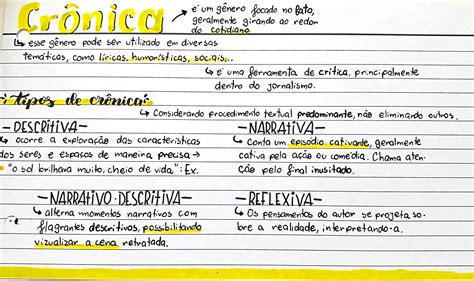 Crônica
é um gênero focado no fato,
geralmente girando ao redor
do cotidiano
esse gênero pode ser utilizado em diversas
temáticas, como líricas, humorísticas, sociais...
é uma ferramenta de crítica, principalmente
dentro do jornalismo.
tipos de crônica:
Considerando procedimento textual predominante, não eliminando outros.
- DESCRITIVA -
ocorre a exploração das características
dos seres e espaços de maneira precisa →
"o sol brilhava muito, cheio de vida," : Ex.
- NARRATIVA -
Conta um episódio cativante, geralmente
cativa pela ação ou comédia. Chama aten-
ção pelo final inusitado.
- NARRATIVO-DESCRITIVA -
alterna momentos narrativos com
flagrantes descritivos, possibilitando
vizualizar a cena retratada.
- REFLEXIVA -
Os pensamentos do autor se projeta so-
bre a realidade, interpretando-a.